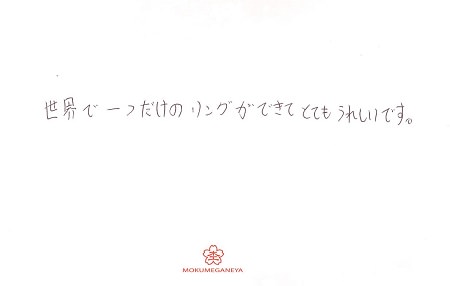 世界で一つだけのリングができてとてもうれしいです。
MOKUMEGANEYA